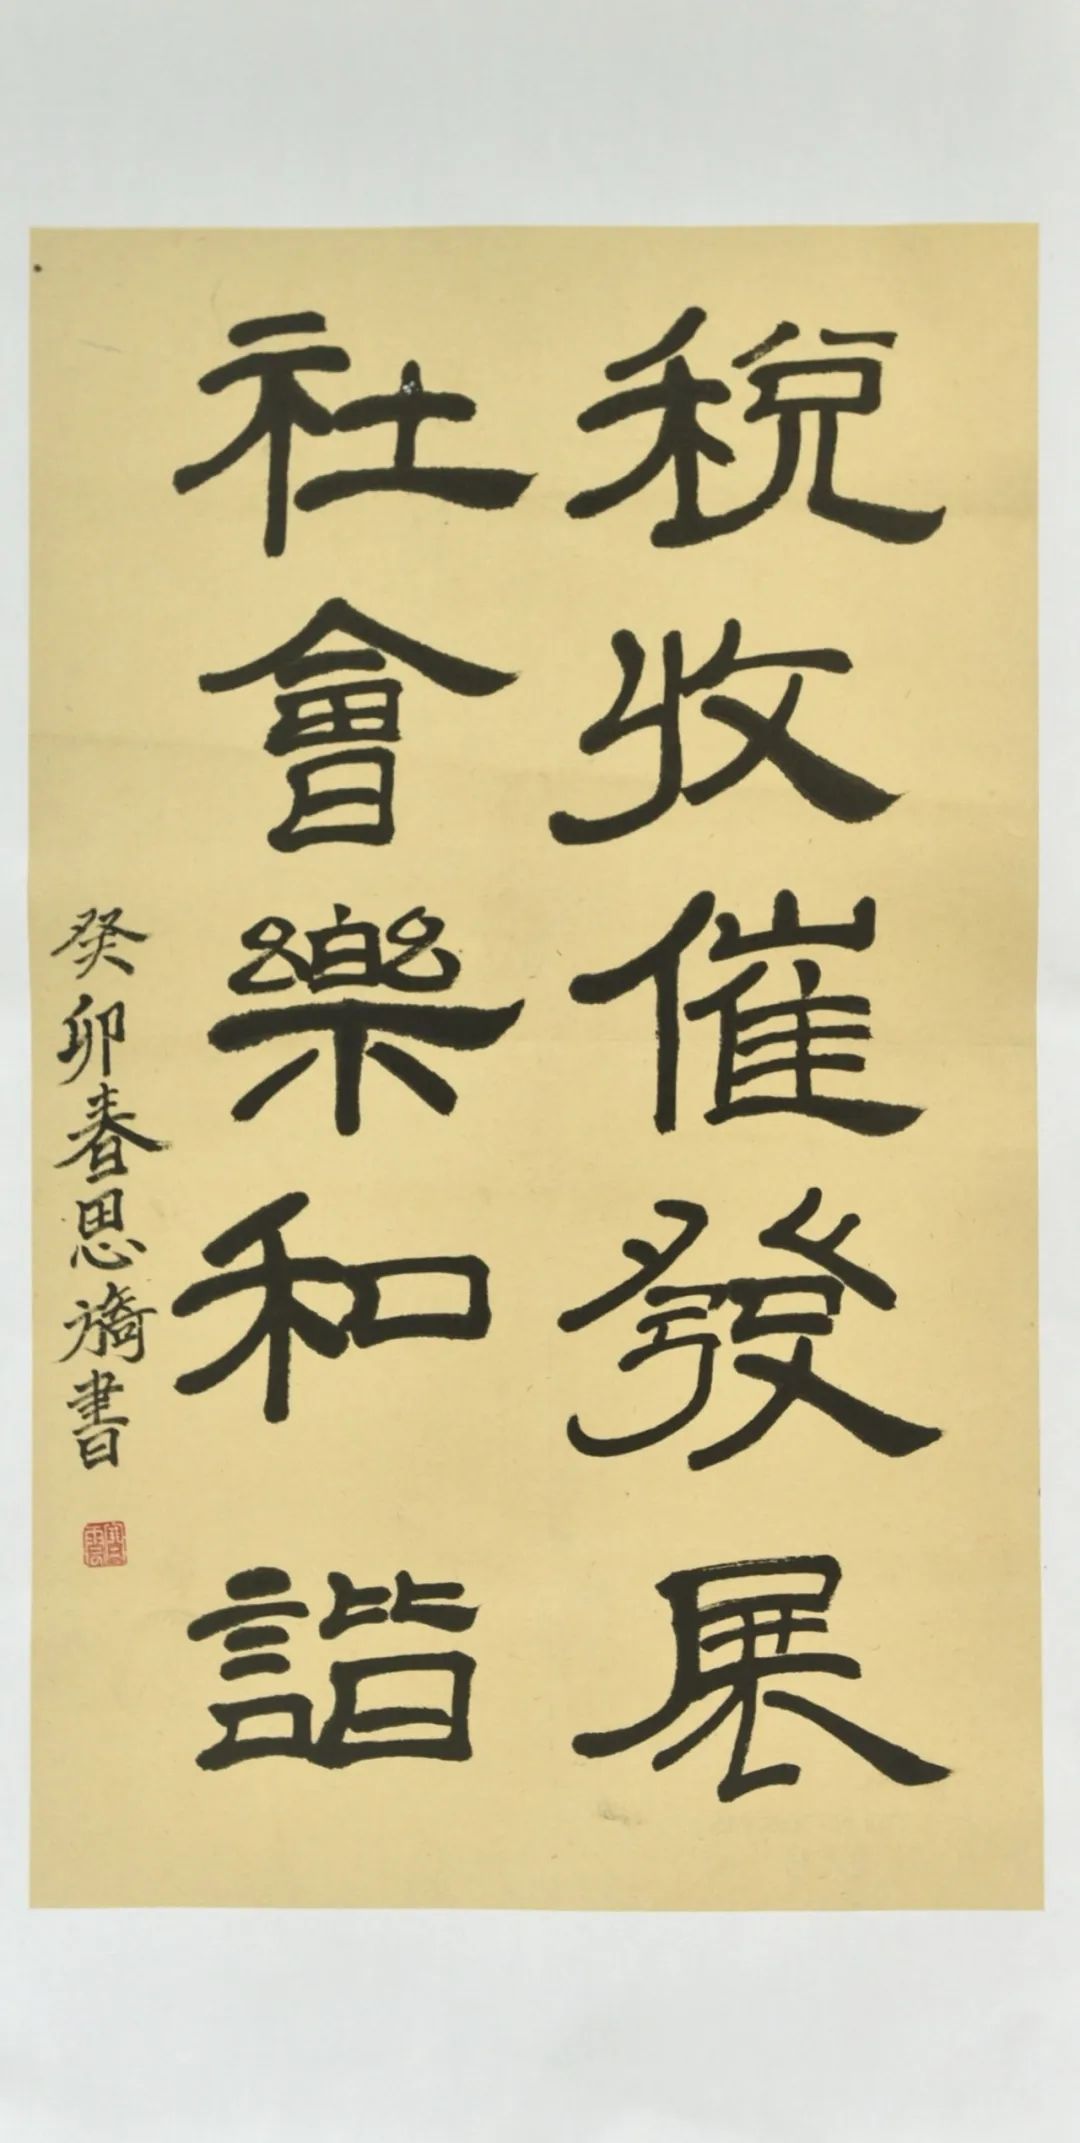 稅收催發展
社會樂和諧
癸卯春思旖書